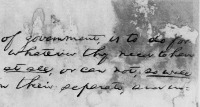 of government, is to do for
whatever they need to have
at all, or can not, so well
in their separate, and in-